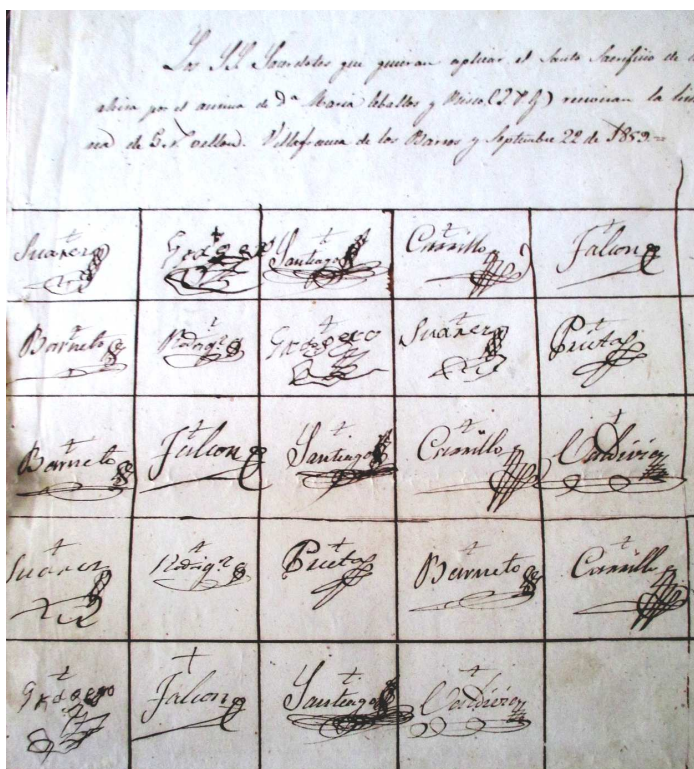 Los SS. Sacerdotes que quieran aplicar el Santo Sacrificio de la
por el anima de Dª Maria Ceballos y recivirán la
de 6 rˢ vellon. Villafranca de los Barros y Septiembre 22 de 1859=
Suarez Santiago Carrillo Falcon
Barneto Rodrigz Suarez Prieto
Barneto Falcon Santiago Carrillo Valdivia
Suarez Rodrigz Prieto Barneto Carrillo
Falcon Santiago Valdivia